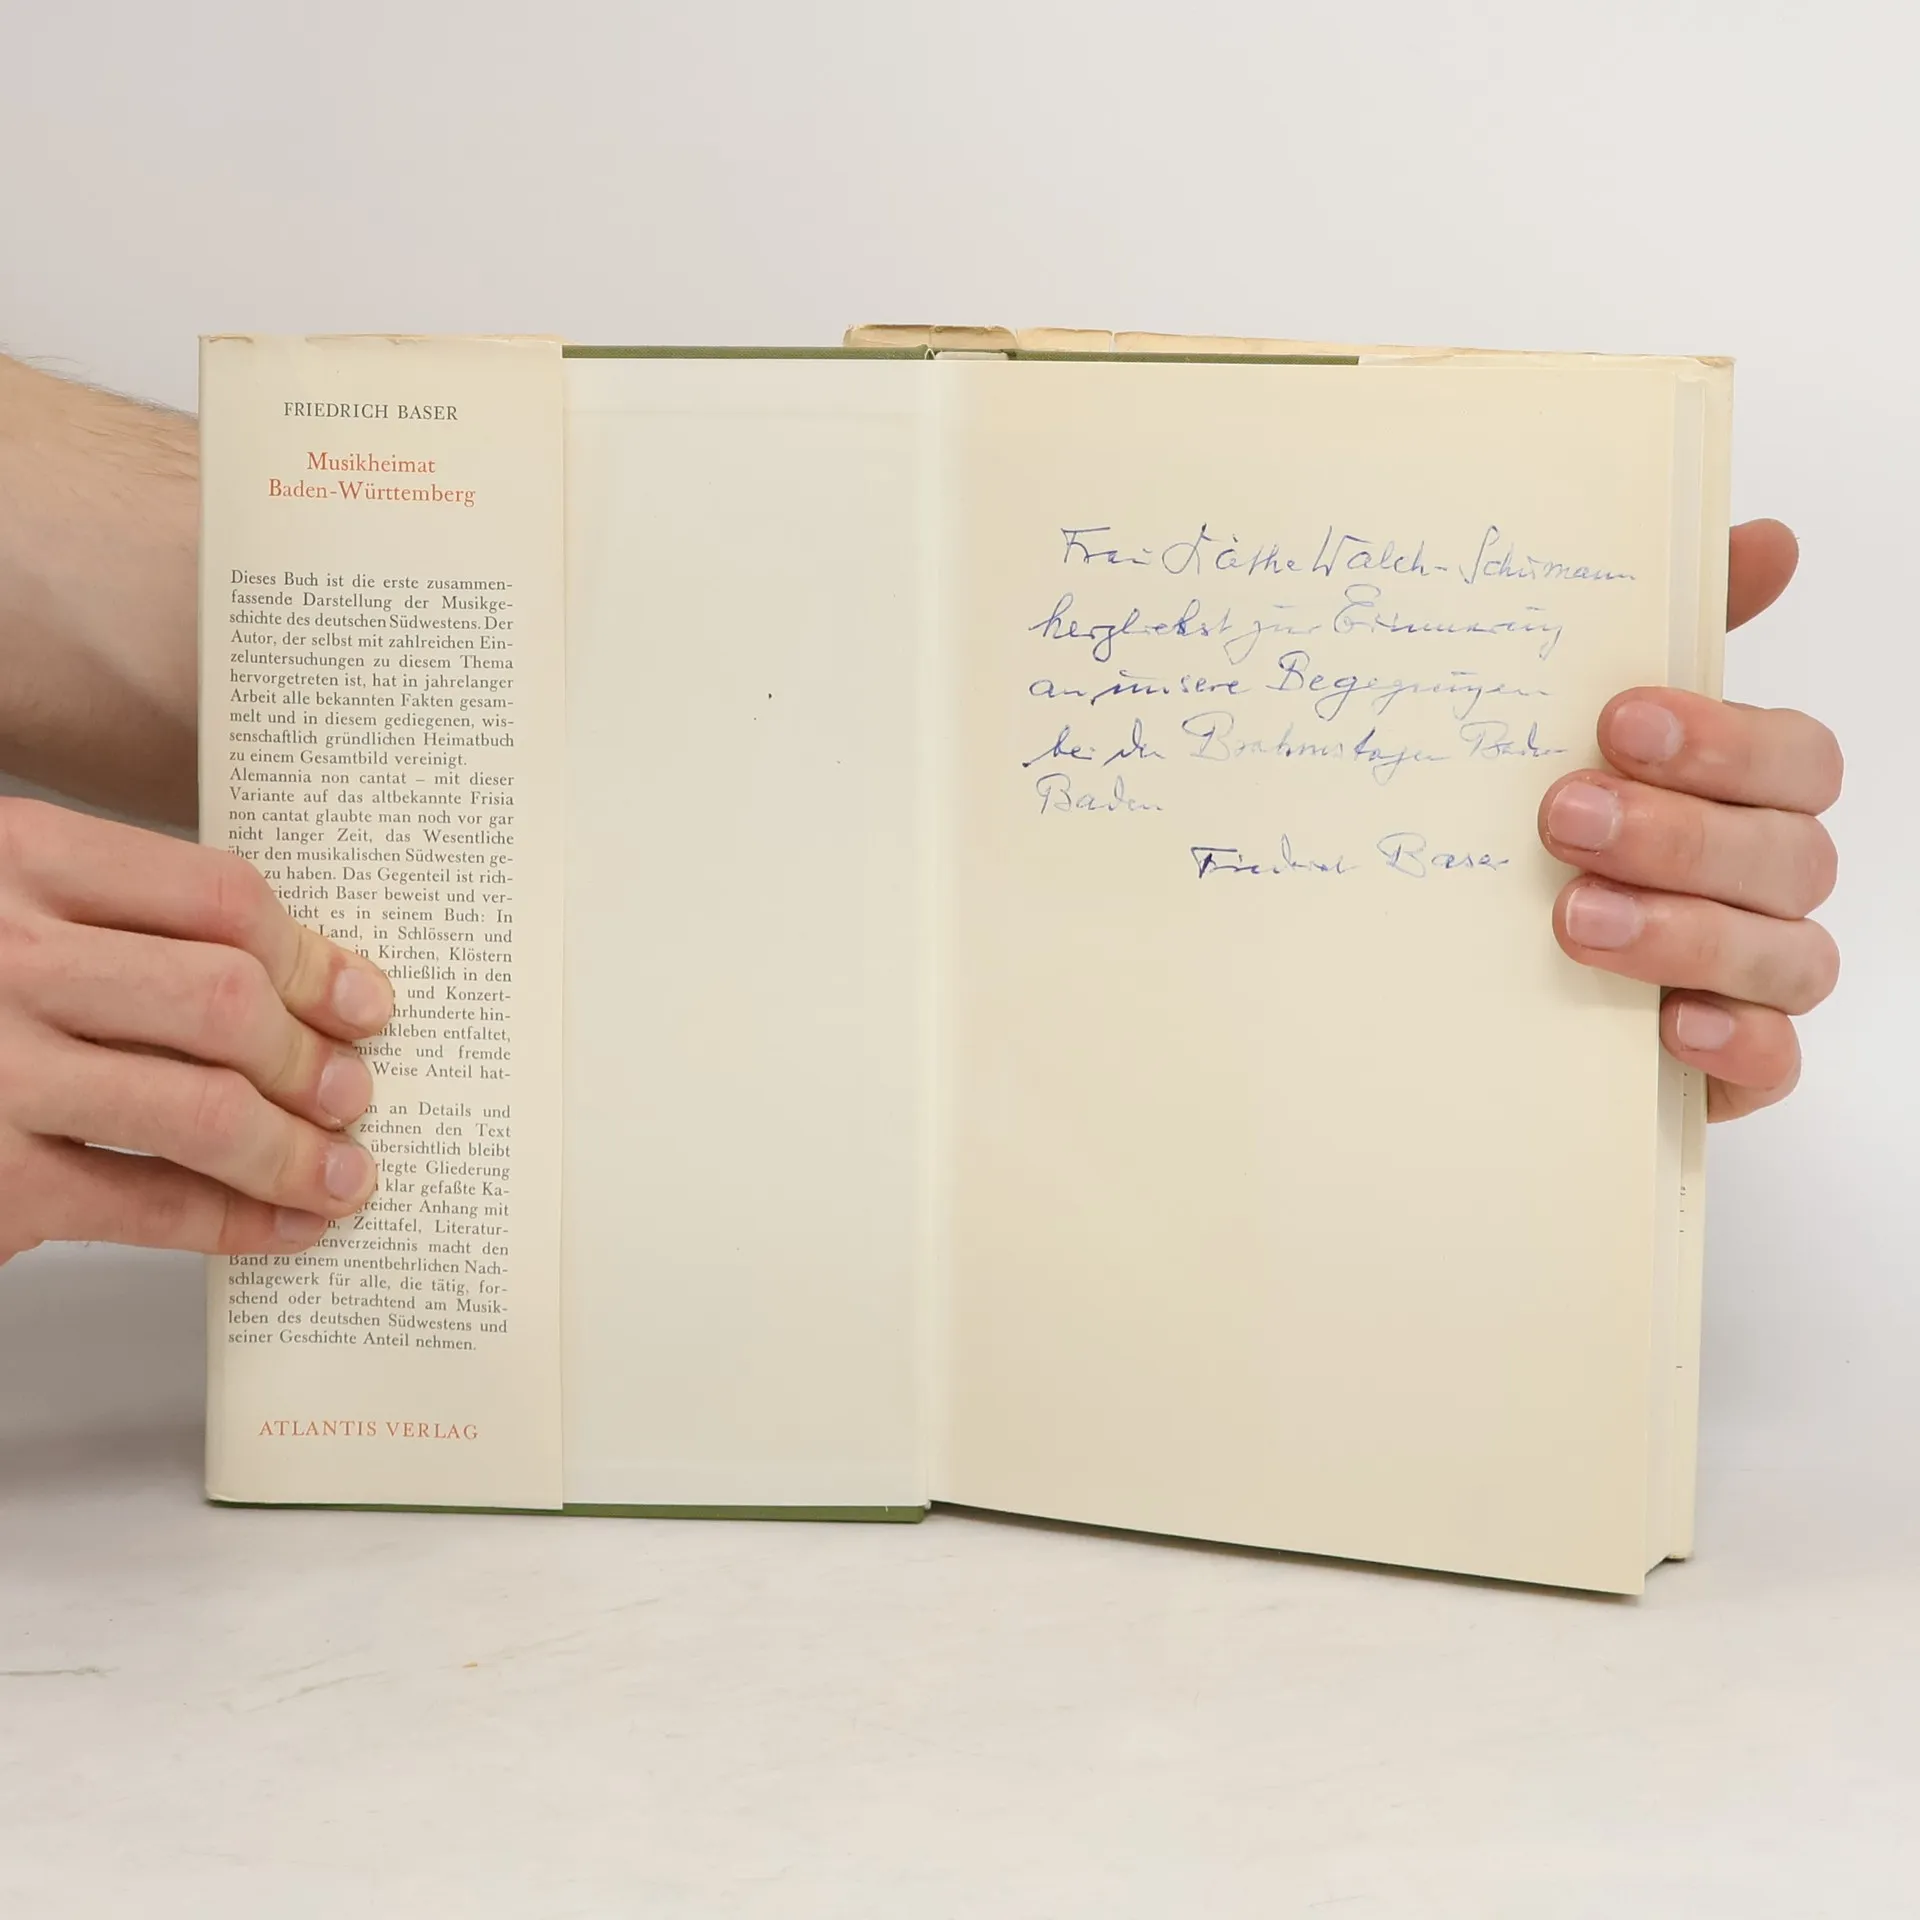 FRIEDRICH BASER
Musikheimat
Baden-Württemberg
Dieses Buch ist die erste zusammen-
fassende Darstellung der Musikge-
schichte des deutschen Südwestens. Der
Autor, der selbst mit zahlreichen Ein-
zeluntersuchungen zu diesem Thema
hervorgetreten ist, hat in jahrelanger
Arbeit alle bekannten Fakten gesam-
melt und in diesem gediegenen, wis-
senschaftlich gründlichen Heimatbuch
zu einem Gesamtbild vereinigt.
Alemannia non cantat – mit dieser
Variante auf das altbekannte Frisia
non cantat glaubte man noch vor gar
nicht langer Zeit, das Wesentliche
über den musikalischen Südwesten ge-
zu haben. Das Gegenteil ist rich-
riedrich Baser beweist und ver-
licht es in seinem Buch: In
Land, in Schlössern und
in Kirchen, Klöstern
schließlich in den
und Konzert-
hrhunderte hin-
sikleben entfaltet,
mische und fremde
Weise Anteil hat-
m an Details und
zeichnen den Text
übersichtlich bleibt
rlegte Gliederung
klar gefaßte Ka-
greicher Anhang mit
n, Zeittafel, Literatur-
enverzeichnis macht den
Band zu einem unentbehrlichen Nach-
schlagewerk für alle, die tätig, for-
schend oder betrachtend am Musik-
leben des deutschen Südwestens und
seiner Geschichte Anteil nehmen.
ATLANTIS VERLAG
Frau Käthe Walch-Schumann
herzlichst zur Erinnerung
an unsere Begegnungen
bei den Brahmstagen Baden
Baden
Friedrich Baser